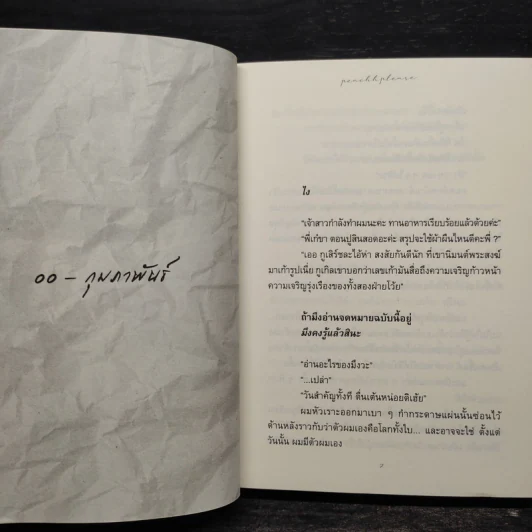 00 – กุมภาพันธ์
peachhplease
ไง
“เจ้าสาวกำลังทำผมนะคะ ทานอาหารเรียบร้อยแล้วด้วยค่ะ”
“พี่เก่ขา ตอนปูสินสอดอะค่ะ สรุปจะใช้ผ้าผืนไหนดีคะพี่ ?”
“เออ กูเสิร์ชละไอ้ห่า สงสัยกันดีนัก ที่เขานิมนต์พระสงฆ์
มาเก้ารูปเนี่ย กูเกิลเขาบอกว่าเลขเก้ามันสื่อถึงความเจริญก้าวหน้า
ความเจริญรุ่งเรืองของทั้งสองฝ่ายโว้ย”
ถ้ามึงอ่านจดหมายฉบับนี้อยู่
มึงคงรู้แล้วสินะ
“อ่านอะไรของมึงวะ”
“...เปล่า”
“วันสำคัญทั้งที ตื่นเต้นหน่อยดิเฮ้ย”
ผมหัวเราะออกมาเบา ๆ กำกระดาษแผ่นนั้นซ่อนไว้
ด้านหลังราวกับว่าตัวผมเองคือโลกทั้งใบ... และอาจจะใช่ ตั้งแต่
วันนั้น ผมมีตัวผมเอง